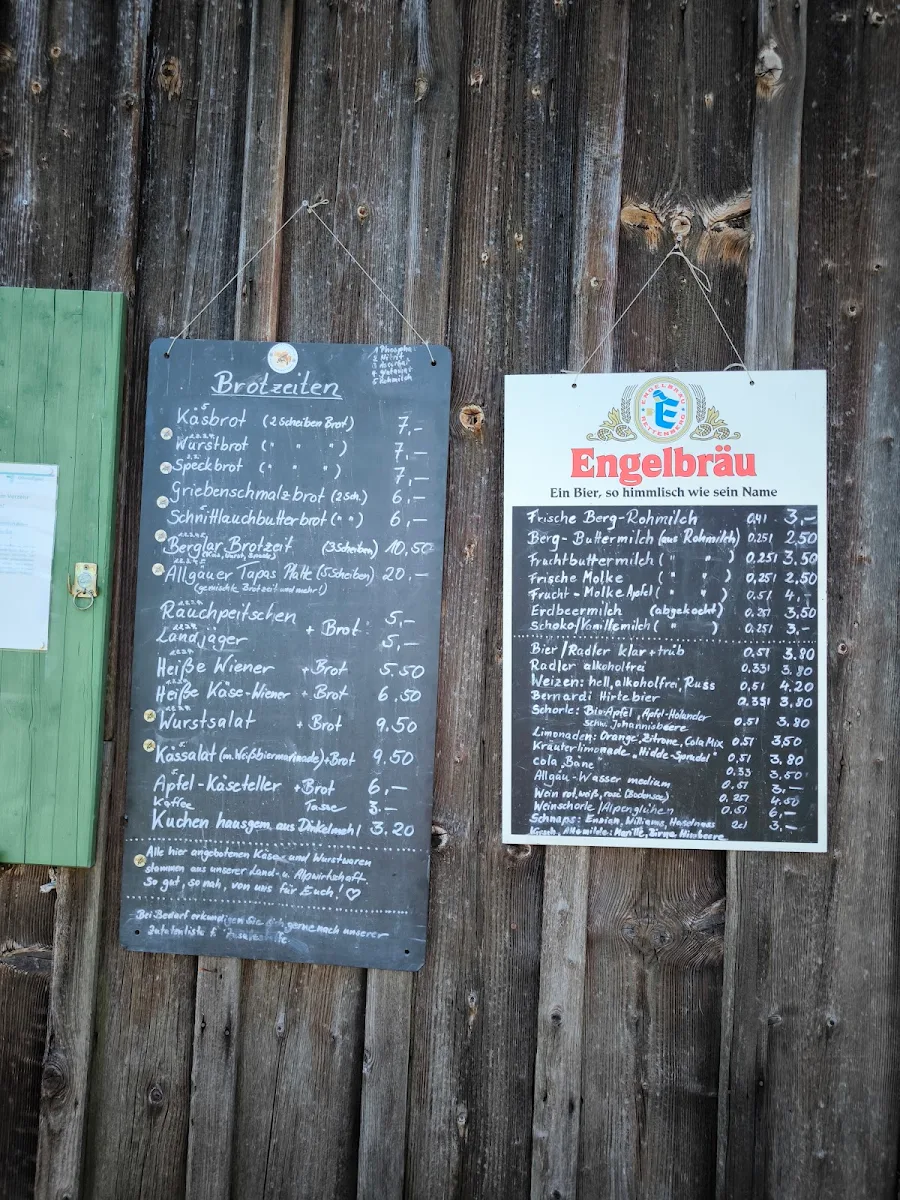 Brotzeiten
2 Nitrit
5 Rohmilch
Käsbrot (2 Scheiben Brot) 7,-
Wurstbrot (" " ") 7,-
Speckbrot (" " ") 7,-
Griebenschmalzbrot (2 Sch.) 6,-
Schnittlauchbutterbrot (" ") 6,-
Berglar Brotzeit (3 Scheiben) 10,50
(Käs, Wurst, Speck)
Allgäuer Tapas Platte (5 Scheiben) 20,-
(gemischte Brotzeit und mehr!)
Rauchpeitschen 5,-
+ Brot
Landjäger 5,-
Heiße Wiener + Brot 5.50
Heiße Käse-Wiener + Brot 6,50
Wurstsalat + Brot 9.50
Kässalat (m. Weißbiermarinade) + Brot 9.50
Apfel-Käseteller + Brot 6,-
Kaffee Tasse 3.-
Kuchen hausgem. aus Dinkelmehl 3.20
Alle hier angebotenen Käse und Wurstwaren
stammen aus unserer Land- u. Alpwirtschaft.
So gut, so nah, von uns für Euch! ♡
Bei Bedarf erkundigen Sie sich gerne nach unserer
Zutatenliste
ENGELBRÄU
RETTENBERG
E
Engelbräu
Ein Bier, so himmlisch wie sein Name
Frische Berg-Rohmilch 0,4l 3,-
Berg-Buttermilch (aus Rohmilch) 0.25l 2,50
Fruchtbuttermilch (" " ) 0,25l 3,50
Frische Molke (" " ) 0,25l 2,50
Frucht-Molke Apfel (" " ) 0.5l 4.-
Erdbeermilch (abgekocht) 0,25l 3,50
Schoko/Vanillemilch (" ) 0.25l 3,-
Bier/Radler klar + trüb 0.5l 3.80
Radler alkoholfrei 0,33l 3.80
Weizen: hell, alkoholfrei, Russ 0,5l 4.20
Bernardi Hirtebier 0.33l 3,80
Schorle: Bio-Apfel, Apfel-Holunder
Schw. Johannisbeere 0,5l 3,80
Limonaden: Orange, Zitrone, Cola Mix 0.5l 3,50
Kräuterlimonade 0,5l 3.80
cola 0.33 3,50
Allgäu-Wasser medium 0.5l 3,-
Wein rot, weiß, rosé (Bodensee) 0,25l 4.50
Weinschorle/Alpenglühen 0.5l 6,-
Schnaps: Enzian, Williams, Haselnuss 2cl 3,-
Kirsch,